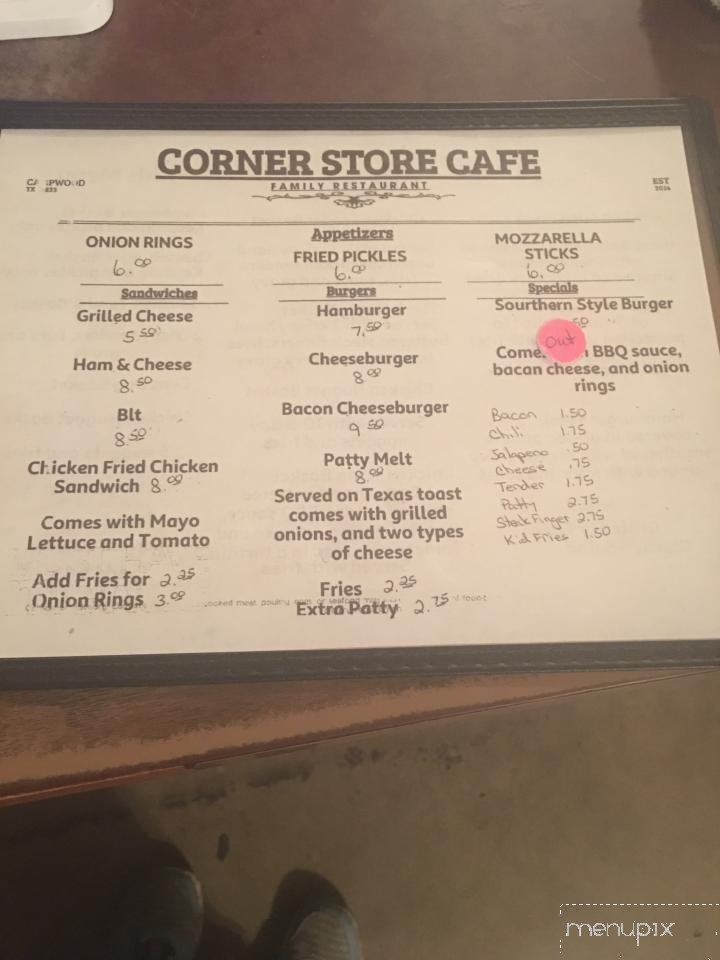 CORNER STORE CAFE
FAMILY RESTAURANT
TX
EST
2014
Appetizers
ONION RINGS
6.00
FRIED PICKLES
6.00
MOZZARELLA
STICKS
6.00
Sandwiches
Grilled Cheese
5 50
Ham & Cheese
8.50
Blt
8.50
Chicken Fried Chicken
Sandwich 8.00
Comes with Mayo
Lettuce and Tomato
Add Fries for 2.25
Onion Rings 3.00
Burgers
Hamburger
7.50
Cheeseburger
8 00
Bacon Cheeseburger
9 50
Patty Melt
8.00
Served on Texas toast
comes with grilled
onions, and two types
of cheese
Fries 2.25
Extra Patty 2.75
Specials
Sourthern Style Burger
50
Out
BBQ sauce,
bacan cheese, and onion
rings
Bacon 1.50
Chili 1.75
Jalapeno .50
Cheese .75
Tender 1.75
Patty 2.75
Steak Finger 2.75
Kid Fries 1.50
menupix